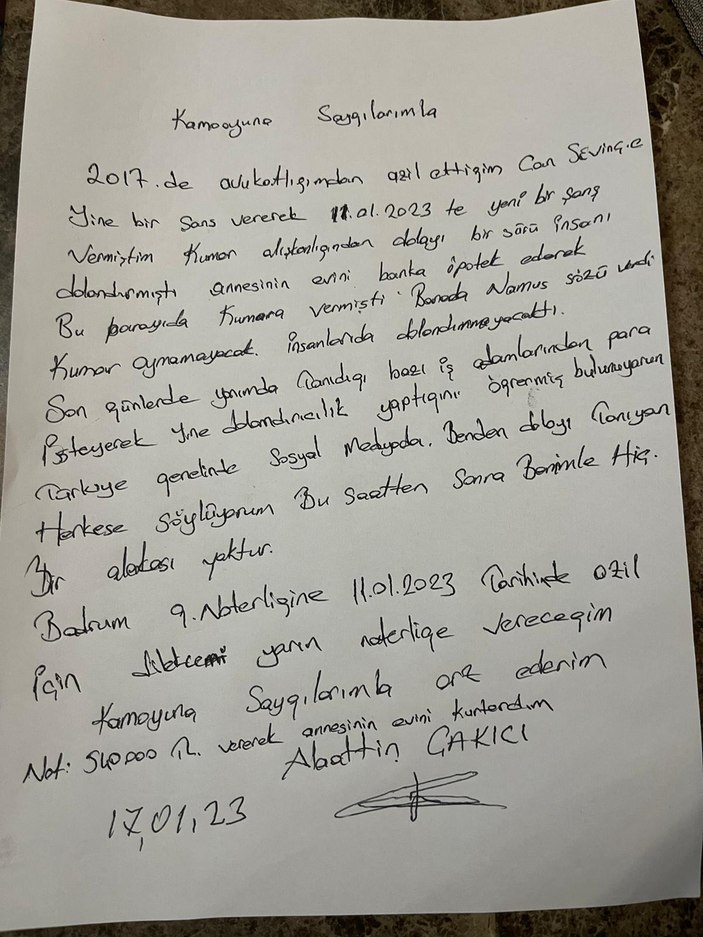 Kamooyuna Saygılarımla
2017.de avukatlığımdan azil ettiğim Can SEVİNÇ.e
Yine bir Şans vererek 11.01.2023 te yeni bir şans
Vermiştim Kumar alışkanlığından dolayı bir sürü insanı
dolandırmıştı annesinin evini banka ipotek ederek
Bu parayıda Kumara vermişti Banada Namus sözü verdi
Kumar oynamayacak. insanlarıda dolandırmayacaktı.
Son günlerde yanımda tanıdığı bazı iş adamlarından para
isteyerek yine dolandırıcılık yaptığını öğrenmiş bulunuyorum
Türkiye genelinde Sosyal Medyada. Benden dolayı tanıyan
Herkese söylüyorum Bu saatten Sonra Benimle Hiç.
Bir alakası yoktur.
Bodrum 9. Noterliğine 11.01.2023 tarihinde azil
için yarın noterliğe vereceğim
Kamoyuna Saygılarımla arz ederim
Not: 540000 TL. vererek annesinin evini kurtardım
Alaattin ÇAKICI
17,01,23